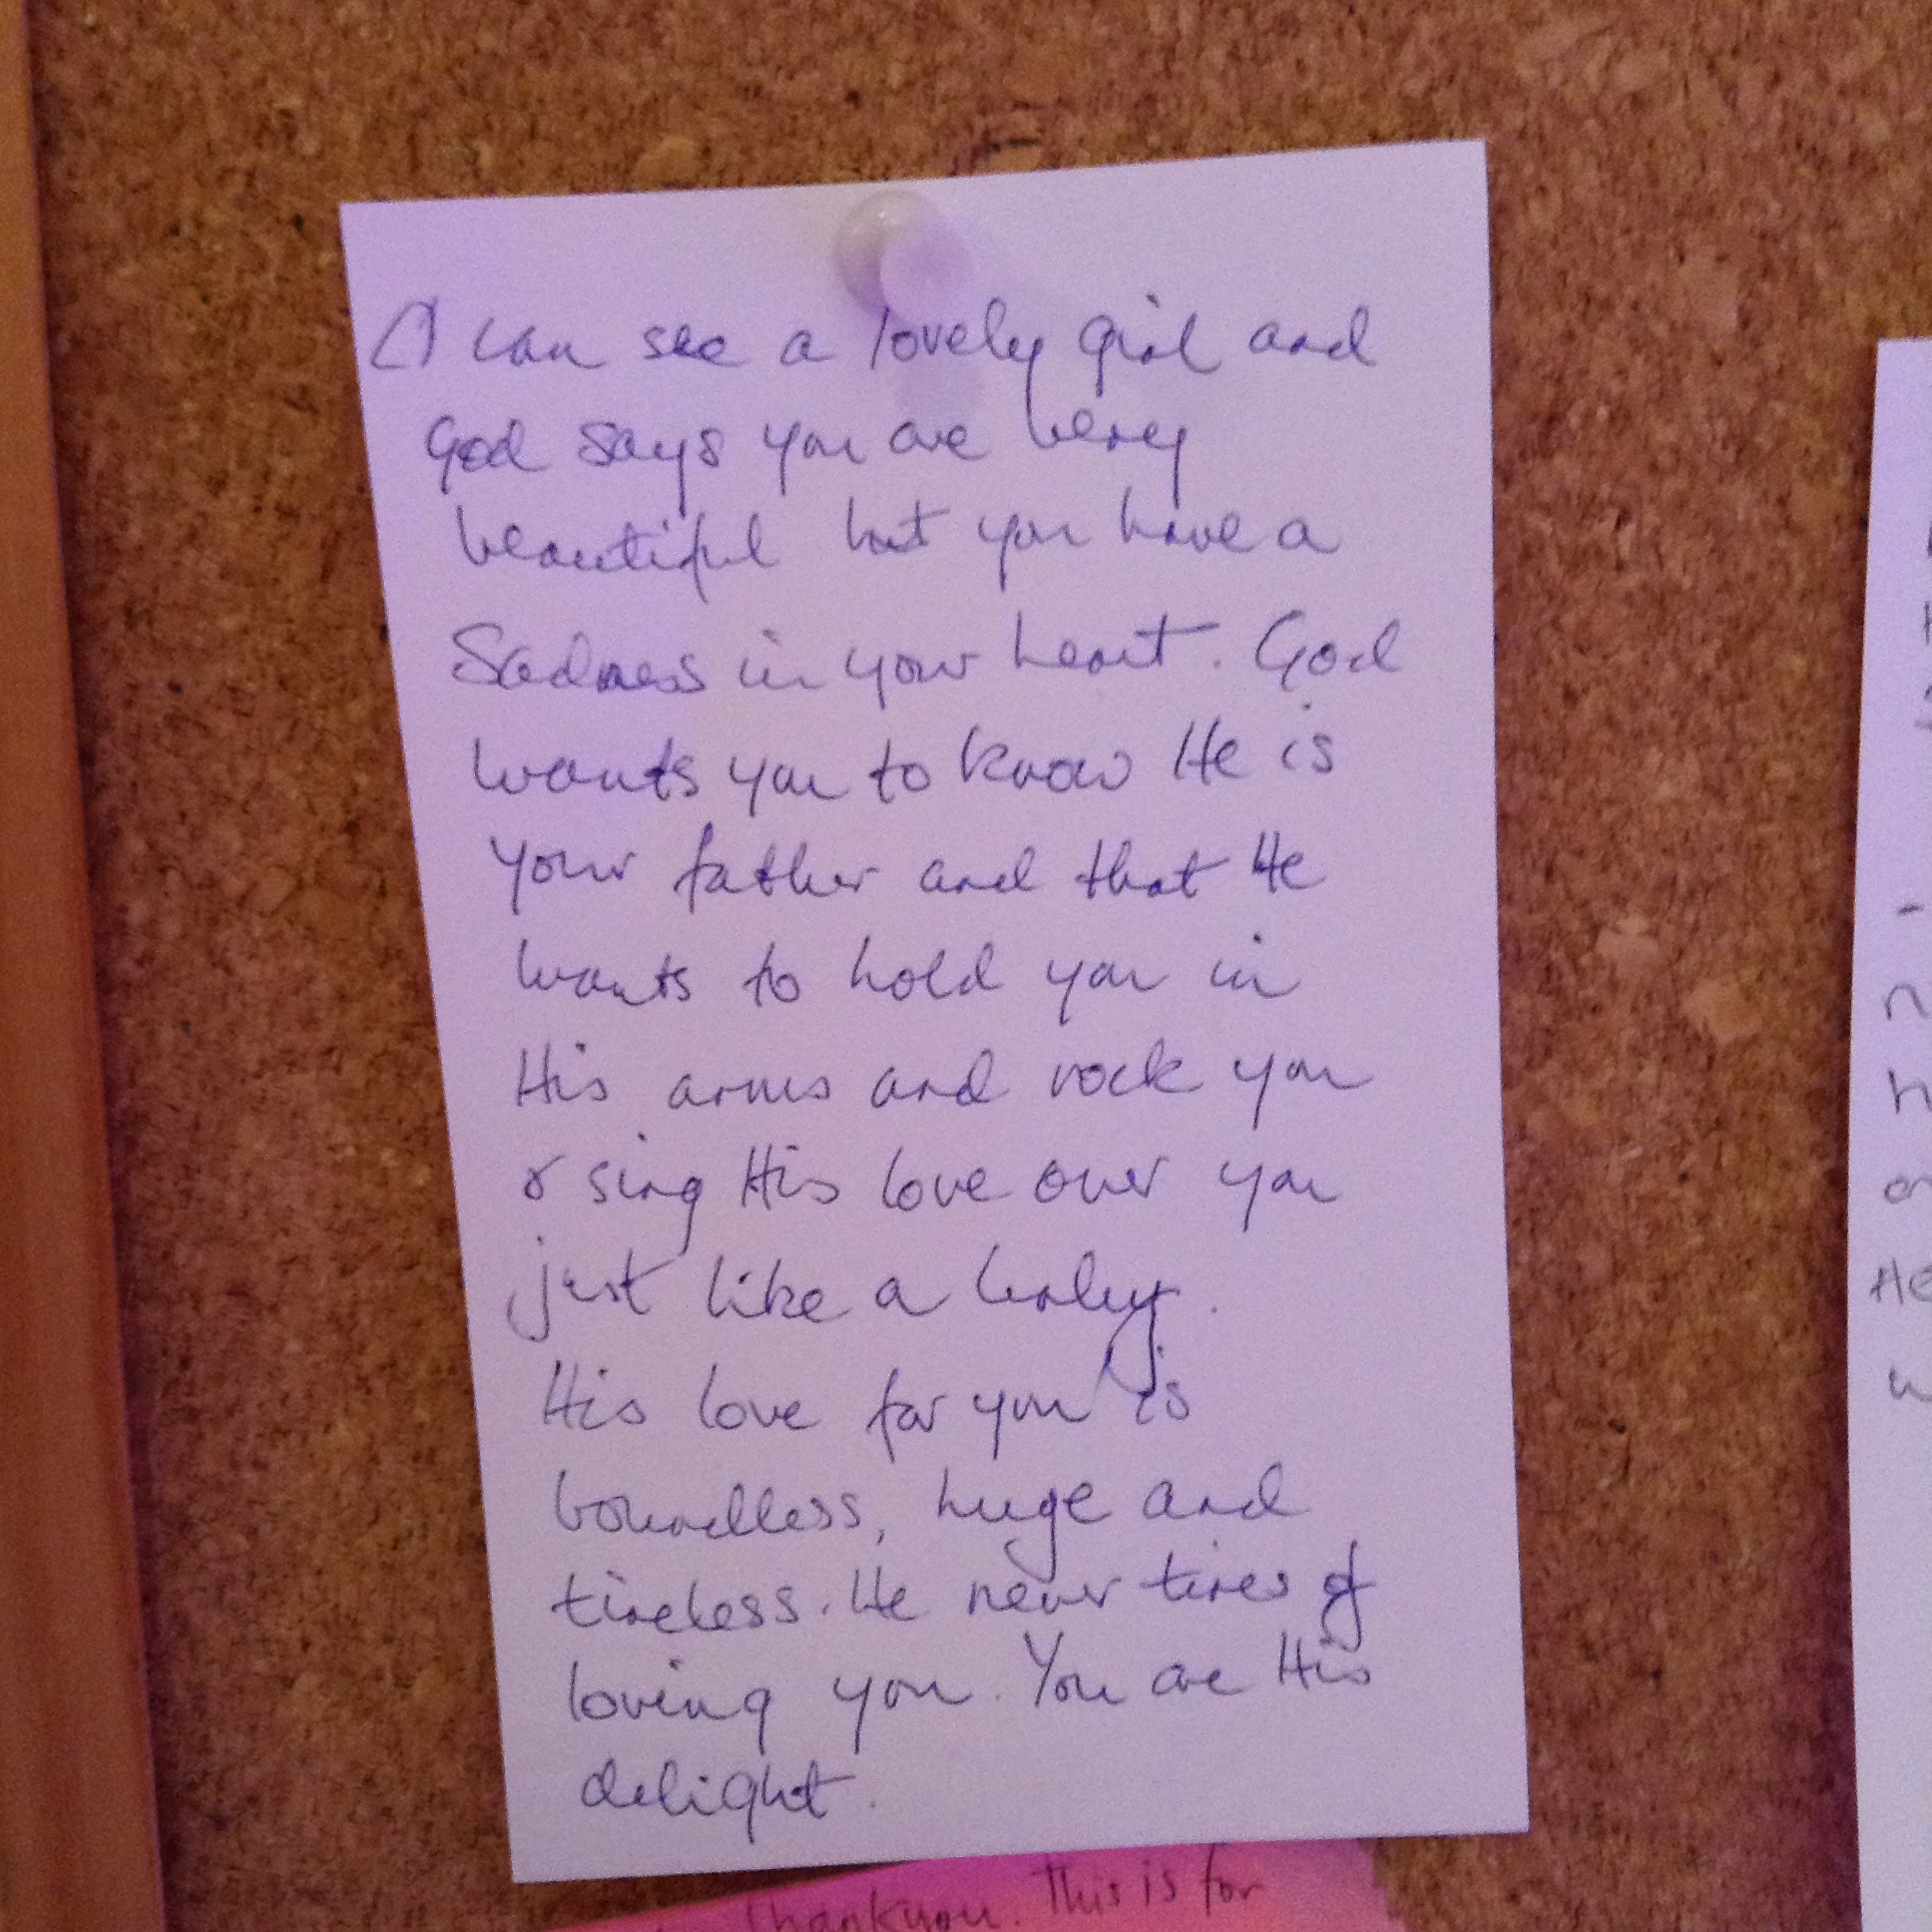 I can see a lovely girl and
God says you are very
beautiful but you have a
Sadness in your heart. God
wants you to know He is
your father and that He
wants to hold you in
His arms and rock you
& sing His love over you
just like a baby.
His love for you is
boundless, huge and
tireless. He never tires of
loving you. You are His
delight.
Thankyou. This is for
He